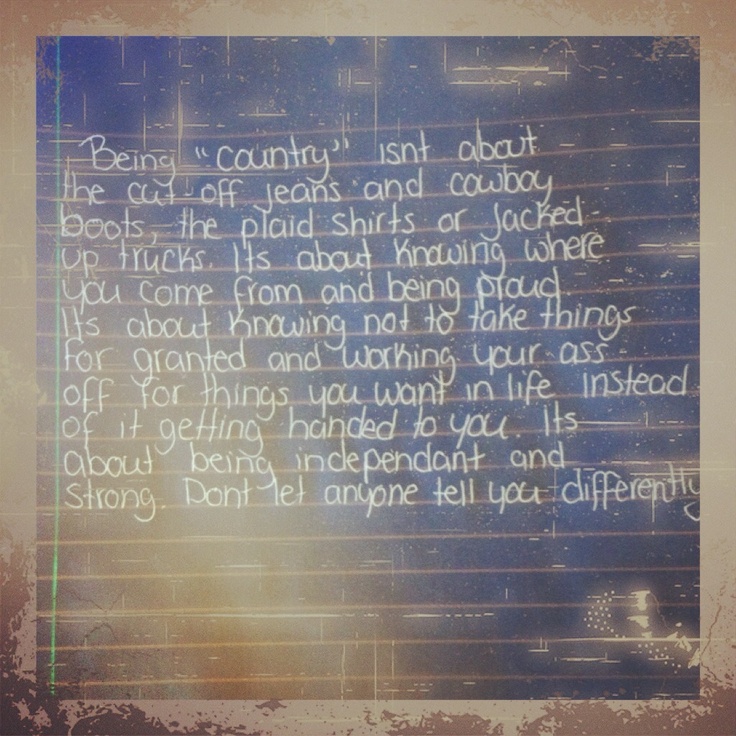 Being "country" isnt about
the cut-off jeans and cowboy
boots, the plaid shirts or jacked
up trucks. Its about knowing where
you come from and being proud
Its about knowing not to take things
for granted and working your ass
off for things you want in life instead
of it getting handed to you. Its
about being independant and
strong. Dont let anyone tell you differently